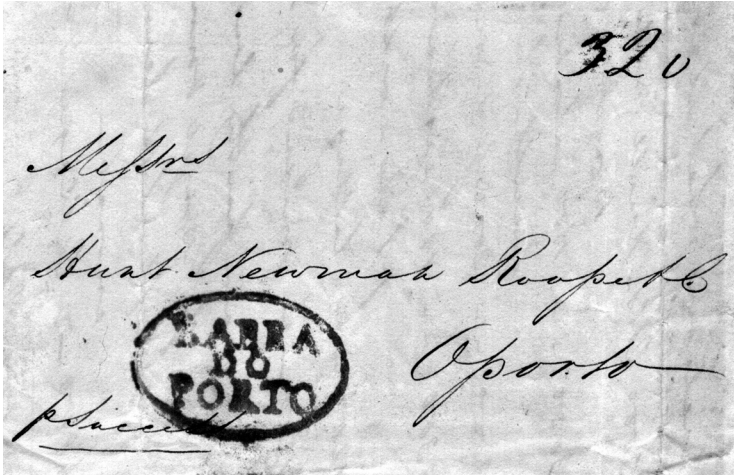 320
Messrs
Hunt Newman Roope & Co
Oporto
BARRA
DO
PORTO
p